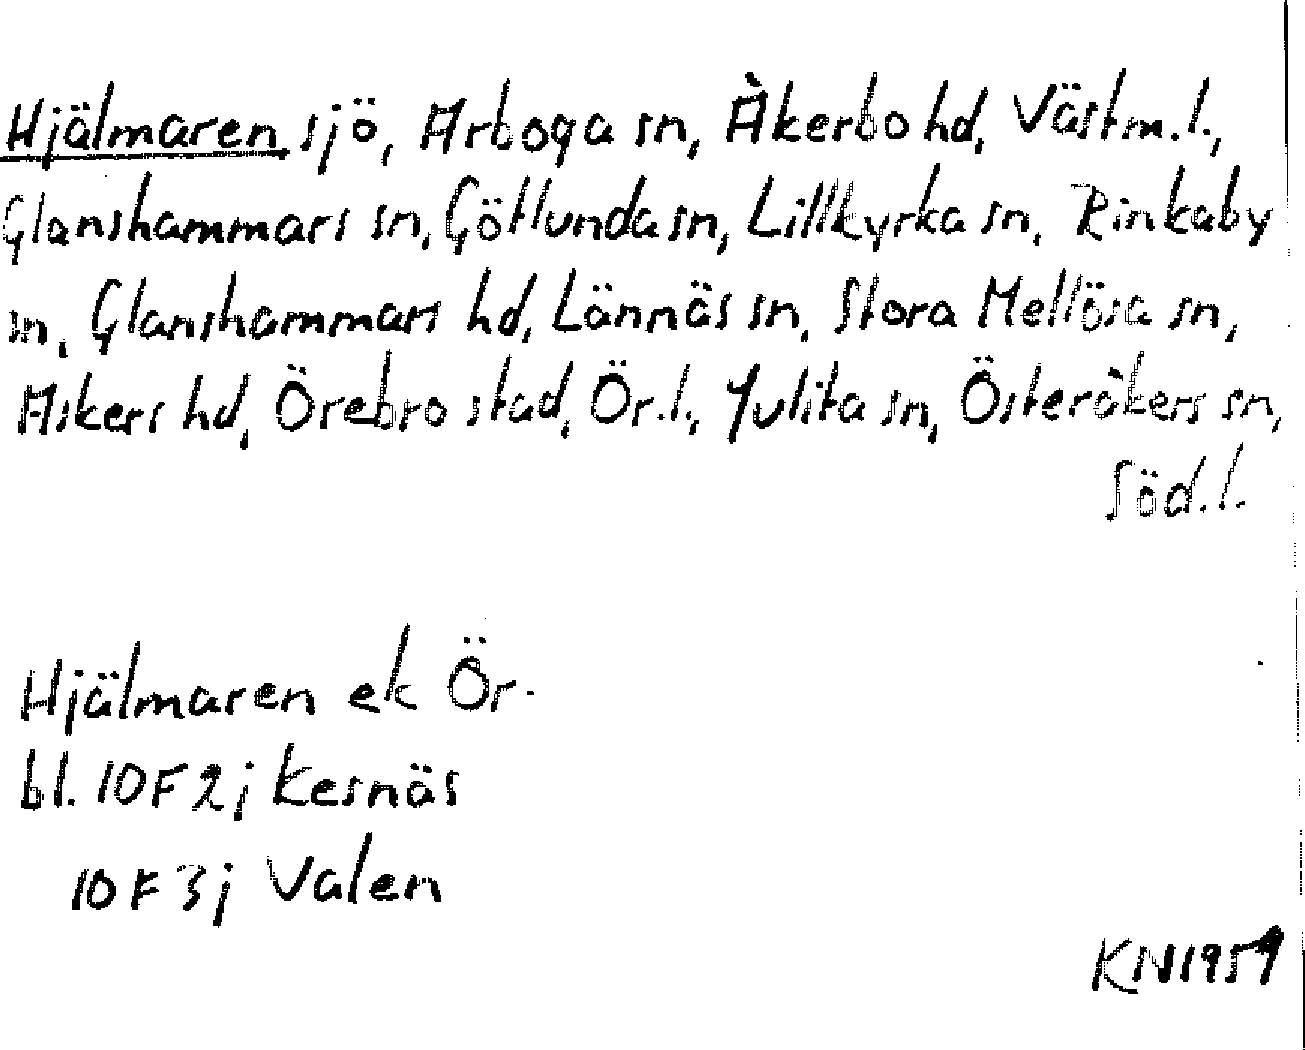 Hjälmaren sjö, Arboga sn, Åkerbo hd, Västm.l.,
Glanshammars sn, Götlunda sn, Lillkyrka sn, Rinkaby
sn, Glanshammars hd, Lännäs sn, Stora Mellösa sn,
Askers hd, Örebro stad, Ör.l., Julita sn, Österåkers sn,
Söd.l.
Hjälmaren ek Ör.
bl. 10F2j Kesnäs
10F3j Valen
KN1959